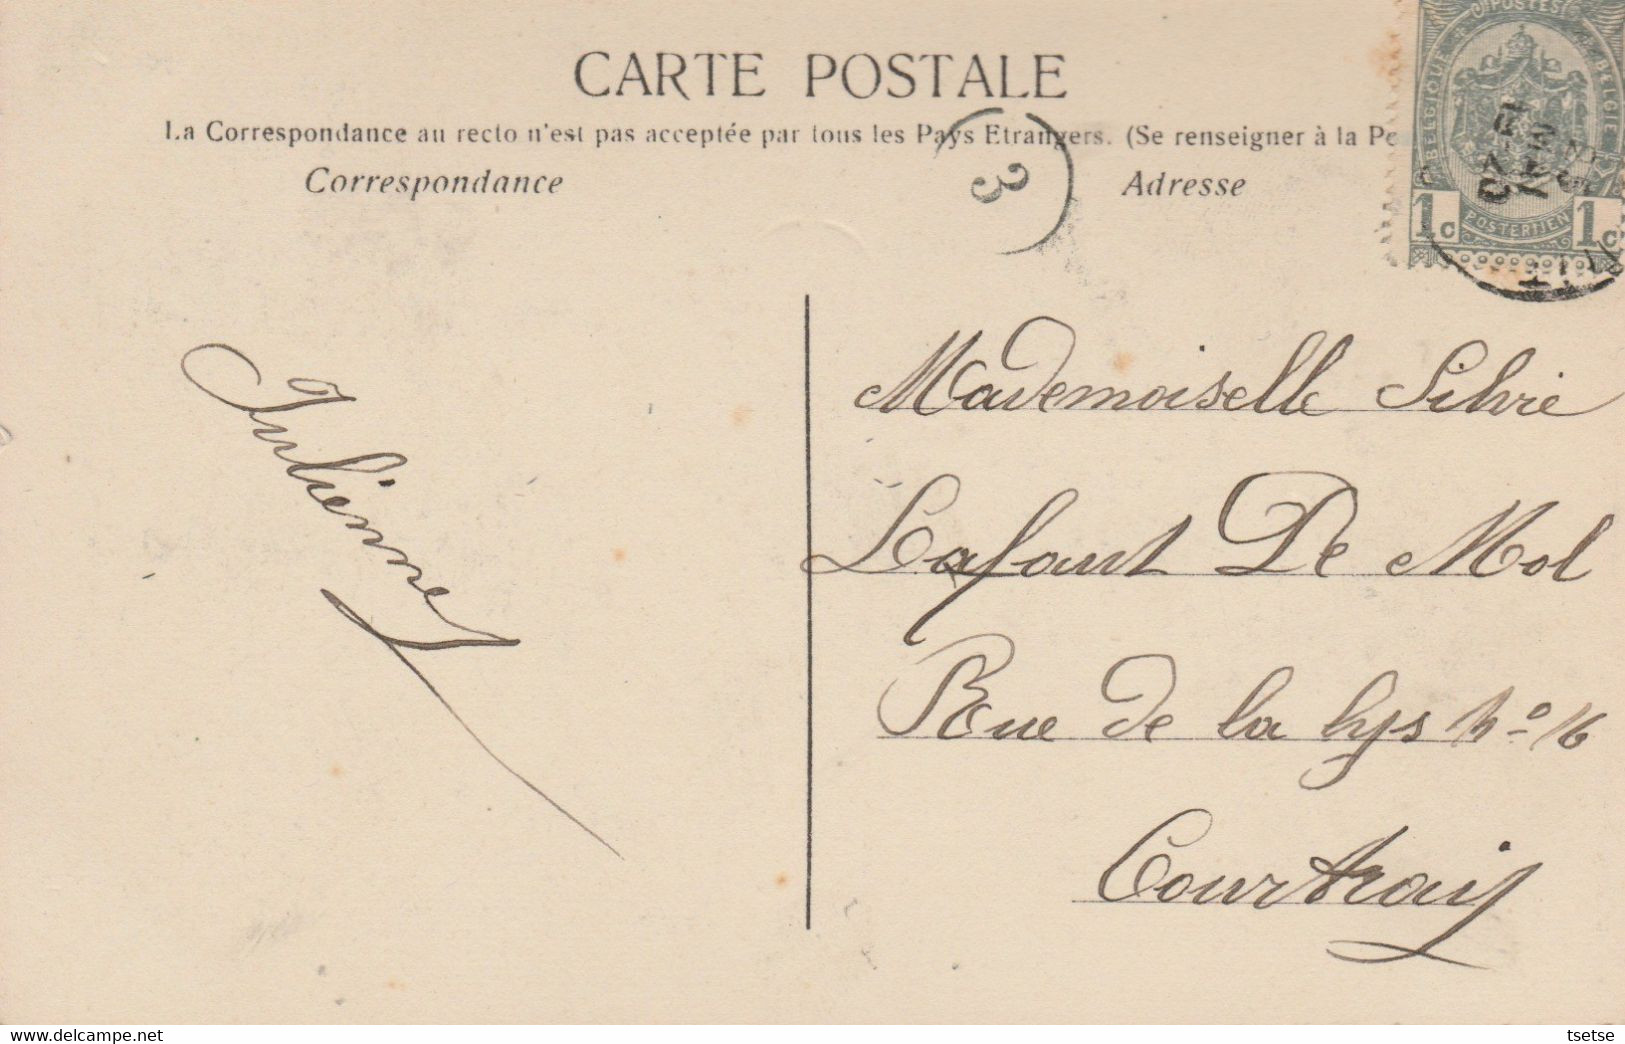 CARTE POSTALE
La Correspondance au recto n'est pas acceptée par tous les Pays Etrangers. (Se renseigner à la Po
Correspondance
Adresse
3
BELGIQUE Cn POSTES BELGIE
1c POSTERIJEN 1c
Juliènne
Mademoiselle Silvie
Lafaut De Mol
Rue de la lys no 16
Courtraij
www.delcampe.net
tsetse